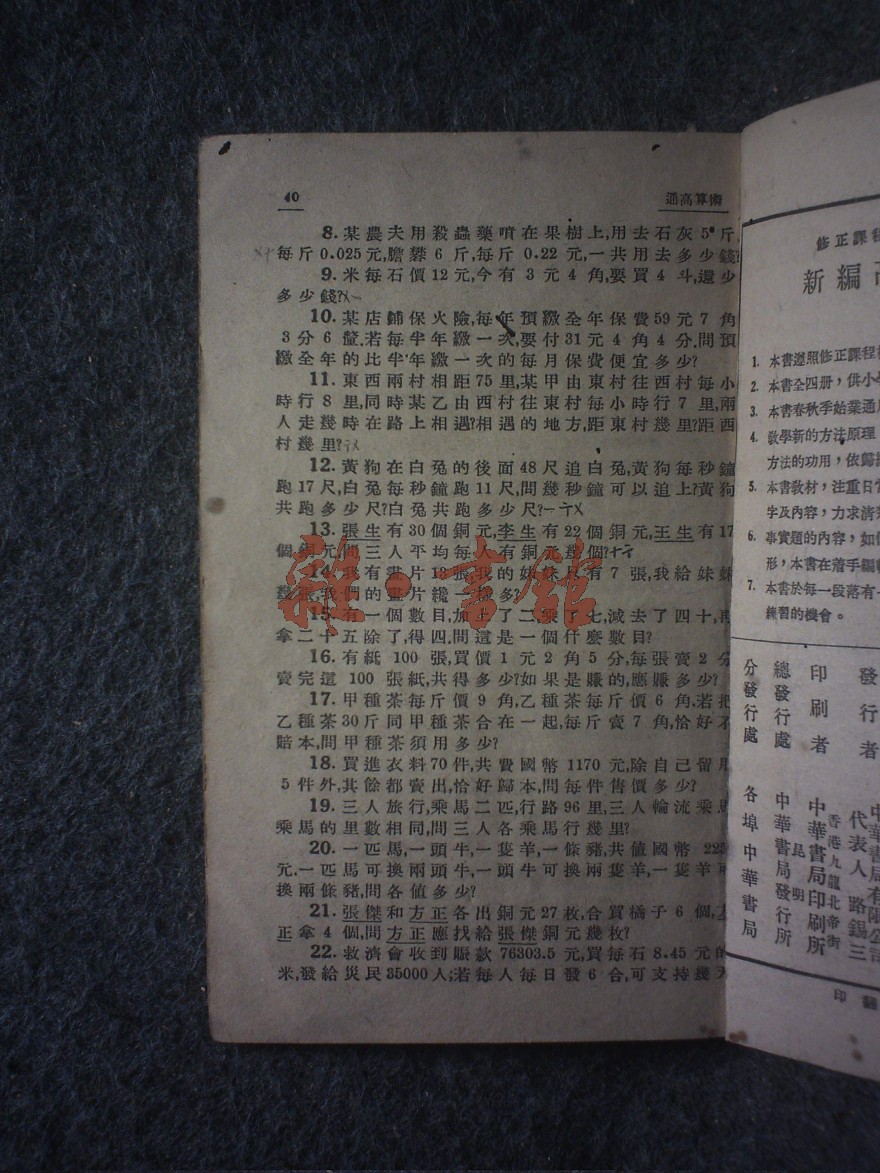 40
通高算術
8. 某農夫用殺蟲藥噴在果樹上,用去石灰5斤,
每斤0.025元,膽礬6斤,每斤0.22元,一共用去多少錢?
9. 米每石價12元,今有3元4角,要買4斗,還少
多少錢?
10. 某店鋪保火險,每年預繳全年保費59元7角
3分6釐.若每半年繳一次,要付31元4角4分.問預
繳全年的比半年繳一次的每月保費便宜多少?
11. 東西兩村相距75里,某甲由東村往西村每小
時行8里,同時某乙由西村往東村每小時行7里,兩
人走幾時在路上相遇?相遇的地方,距東村幾里?距西
村幾里?
12. 黃狗在白兔的後面48尺追白兔,黃狗每秒鐘
跑17尺,白兔每秒鐘跑11尺,問幾秒鐘可以追上?黃狗
共跑多少尺?白兔共跑多少尺?
13. 張生有30個銅元,李生有22個銅元,王生有17
個銅元,問三人平均每人有銅元幾個?
14. 我有畫片13張,我的妹妹只有7張,我給妹妹
幾張,我們的畫片纔一樣多?
15. 有一個數目,加上了二,乘了七,減去了四十,再
拿二十五除了,得四.問這是一個什麼數目?
16. 有紙100張,買價1元2角5分,每張賣2分
賣完這100張紙,共得多少?如果是賺的,應賺多少?
17. 甲種茶每斤價9角,乙種茶每斤價6角.若把
乙種茶30斤同甲種茶合在一起,每斤賣7角,恰好不
賠本,問甲種茶須用多少?
18. 買進衣料70件,共費國幣1170元,除自己留用
5件外,其餘都賣出,恰好歸本,問每件售價多少?
19. 三人旅行,乘馬二匹,行路96里,三人輪流乘馬
乘馬的里數相同,問三人各乘馬行幾里?
20. 一匹馬,一頭牛,一隻羊,一條豬,共值國幣225
元.一匹馬可換兩頭牛,一頭牛可換兩隻羊,一隻羊可
換兩條豬,問各值多少?
21. 張傑和方正各出銅元27枚,合買橘子6個,方
正拿4個,問方正應找給張傑銅元幾枚?
22. 救濟會收到賑款76303.5元,買每石8.45元的
米,發給災民35000人;若每人每日發6合,可支持幾天
雜·書館
修正課程
新編高
1. 本書遵照修正課程標
2. 本書全四册,供小學
3. 本書春秋季始業通用
4. 教學新的方法原理,
方法的功用,依歸
5. 本書教材,注重日常
字及內容,力求清
6. 事實題的內容,如
形,本書在着手編
7. 本書於每一段落有
練習的機會。
發行者
中華書局有限公司
代表人 路錫三
香港九龍北帝街
印刷者
中華書局印刷所
總發行處
昆明
中華書局發行所
分發行處
各埠中華書局
印翻